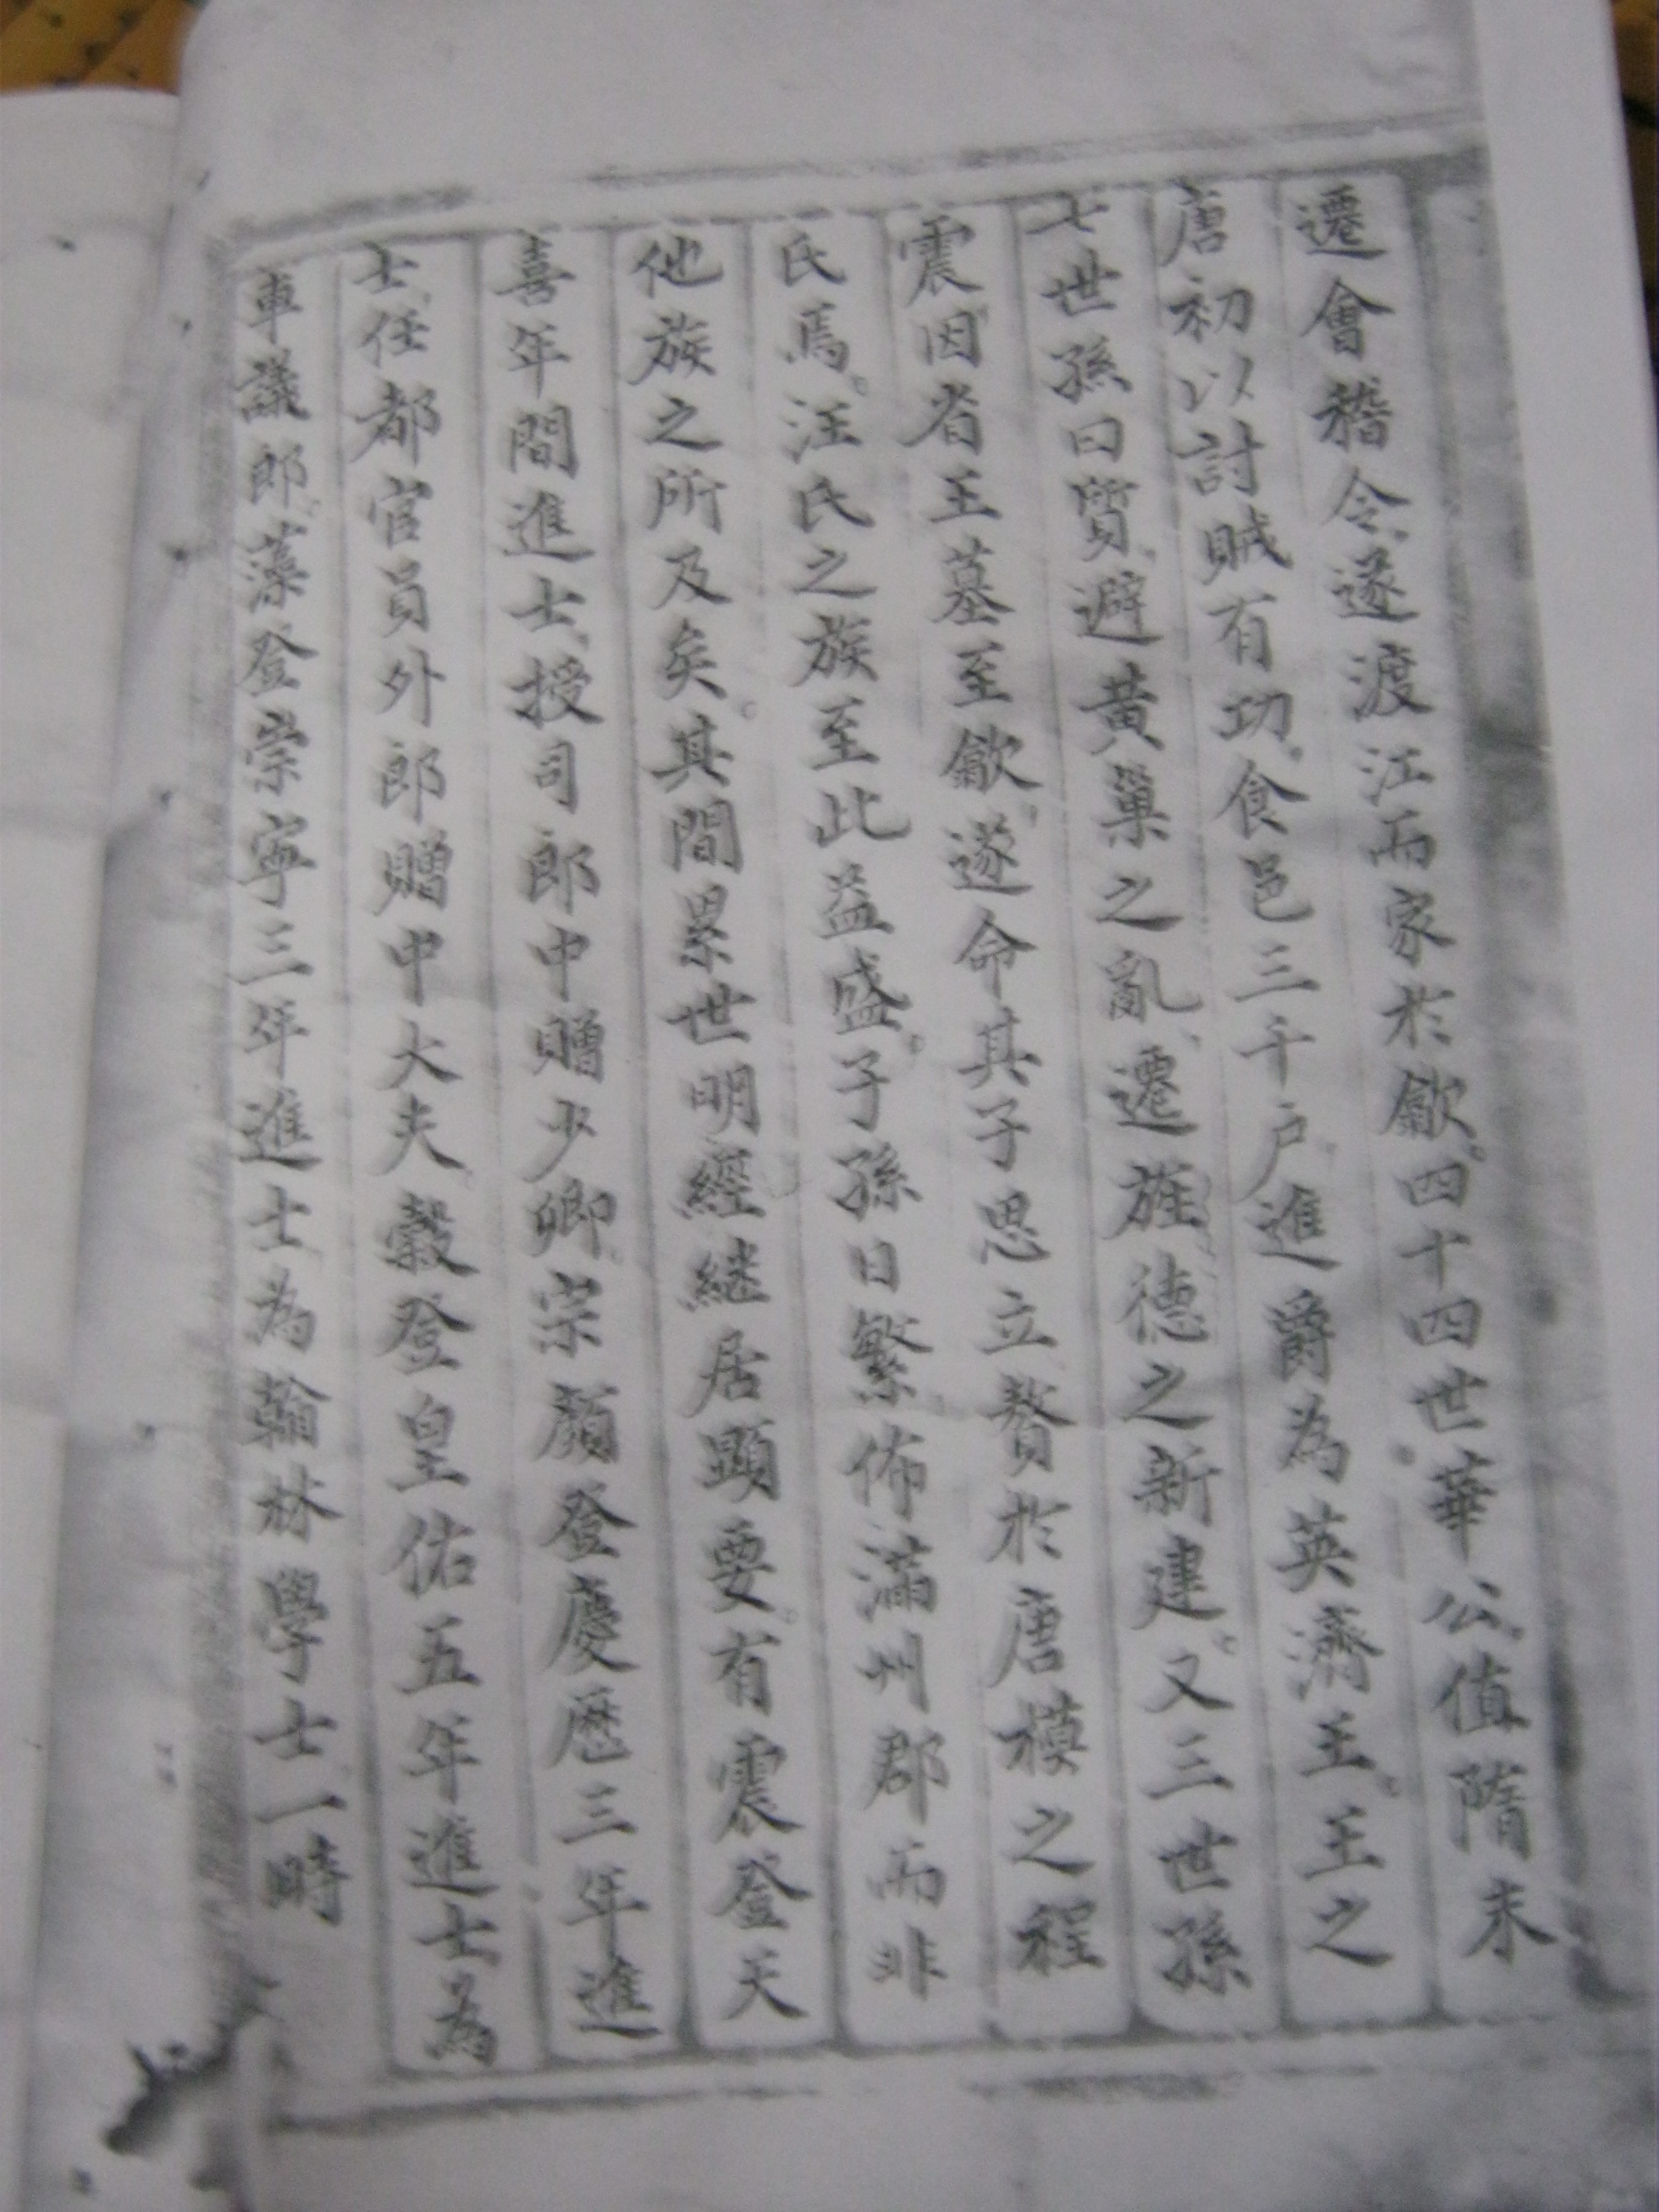 遷會稽令遂渡江而家於歙四十四世華公值隋末
唐初以討賊有功食邑三千戶進爵為英濟王王之
七世孫曰質避黃巢之亂遷旌德之新建又三世孫
震因省王墓至歙遂命其子思立贅於唐模之程
氏焉汪氏之族至此益盛子孫日繁佈滿州郡而非
他族之所及矣其間累世明經継居顕要有震登天
喜年間進士授司郎中贈少卿宗顏登慶曆三年進
士任都官員外郎贈中大夫穀登皇佑五年進士為
車議郎藻登崇寧三年進士為翰林學士一時